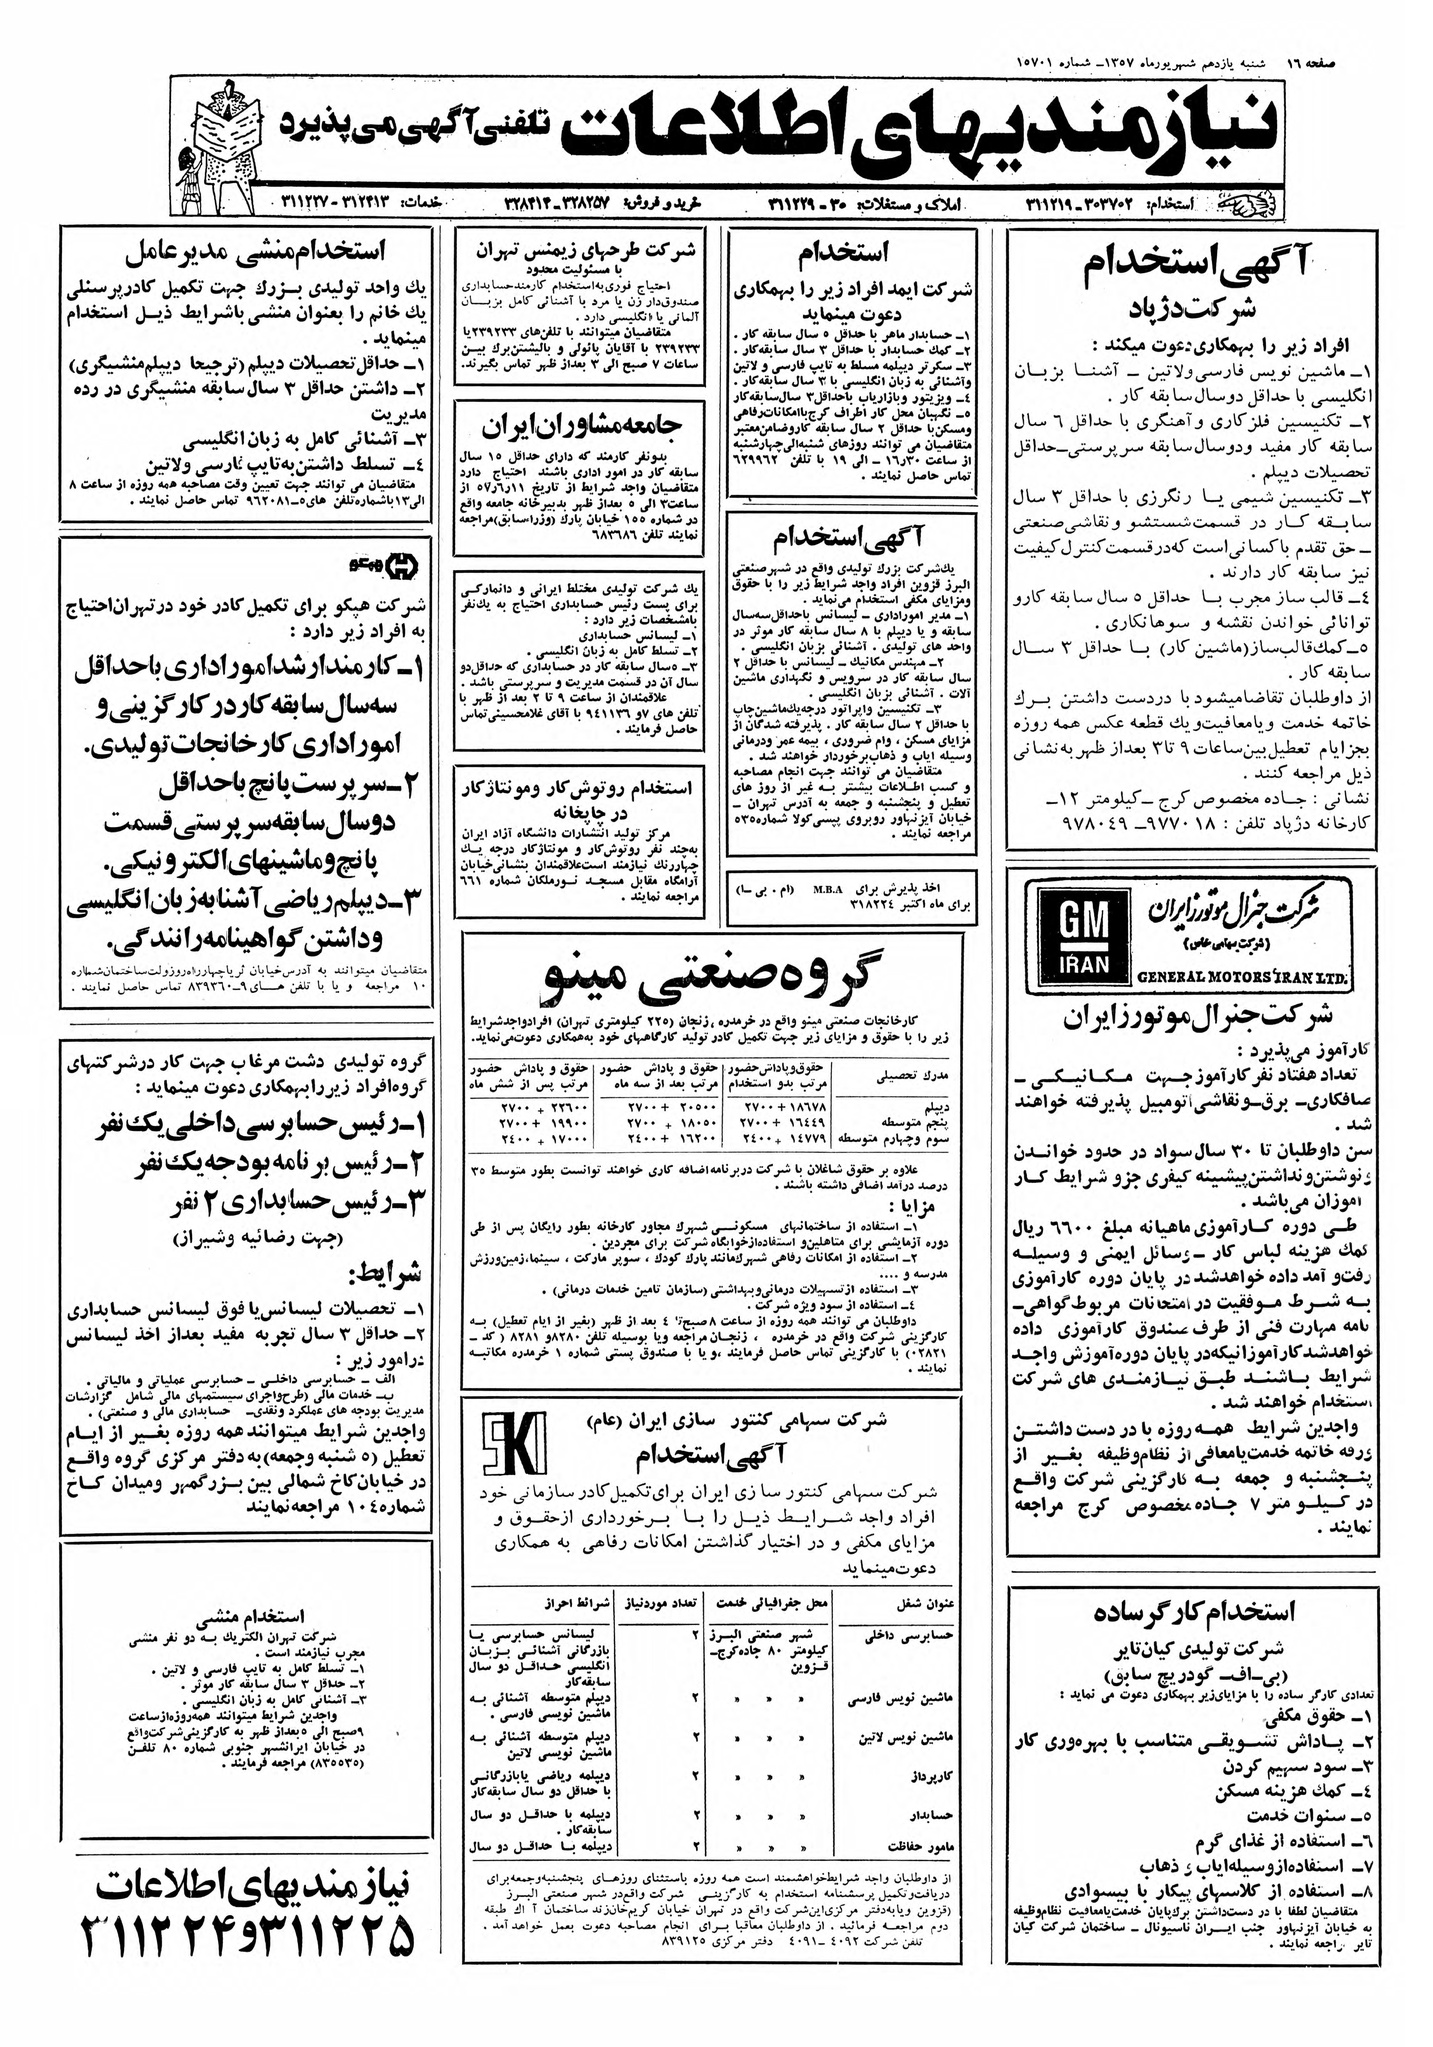 صفحه ۱۶ شنبه یازدهم شهریورماه ۱۳۵۷- شماره ۱۵۷۰۱
نیازمندیهای اطلاعات تلفنی آگهی می‌پذیرد
استخدام: ۳۰۳۷۰۲-۳۱۱۲۱۹ املاک و مستغلات: ۳۰-۳۱۱۲۲۹ خرید و فروش: ۳۲۸۲۵۷-۳۲۸۴۱۴ خدمات: ۳۱۲۴۱۳-۳۱۱۲۲۷
آگهی استخدام
شرکت دژپاد
افراد زیر را بهمکاری دعوت میکند :
۱- ماشین نویس فارسی ولاتین - آشنا بزبان
انگلیسی با حداقل دوسال سابقه کار .
۲- تکنیسین فلزکاری و آهنگری با حداقل ۶ سال
سابقه کار مفید ودوسال سابقه سرپرستی-حداقل
تحصیلات دیپلم .
۳- تکنیسین شیمی یا رنگرزی با حداقل ۳ سال
سابقه کار در قسمت شستشو و نقاشی صنعتی
- حق تقدم باکسانی است که در قسمت کنترل کیفیت
نیز سابقه کار دارند .
۴- قالب ساز مجرب با حداقل ۵ سال سابقه کارو
توانائی خواندن نقشه و سوهانکاری .
۵- کمک قالب ساز(ماشین کار) با حداقل ۳ سال
سابقه کار .
از داوطلبان تقاضا میشود با دردست داشتن برگ
خاتمه خدمت ویامعافیت ویک قطعه عکس همه روزه
بجزایام تعطیل بین ساعات ۹ تا ۳ بعداز ظهر به نشانی
ذیل مراجعه کنند .
نشانی : جاده مخصوص کرج -کیلومتر ۱۲-
کارخانه دژپاد تلفن : ۹۷۷۰۱۸- ۹۷۸۰۴۹
GM
IRAN
شرکت جنرال موتورز ایران
(شرکت سهامی خاص)
GENERAL MOTORS IRAN LTD.
شرکت جنرال موتورز ایران
کارآموز می‌پذیرد :
تعداد هفتاد نفر کارآموز جهت مکانیکی -
صافکاری- برق-ونقاشی اتومبیل پذیرفته خواهند
شد .
سن داوطلبان تا ۳۰ سال سواد در حدود خواندن
ونوشتن ونداشتن پیشینه کیفری جزو شرایط کار
آموزان می‌باشد .
طی دوره کارآموزی ماهیانه مبلغ ۶۶۰۰ ریال
کمک هزینه لباس کار - وسائل ایمنی و وسیله
رفت و آمد داده خواهدشد در پایان دوره کارآموزی
به شرط موفقیت در امتحانات مربوط گواهی-
نامه مهارت فنی از طرف صندوق کارآموزی داده
خواهدشد کارآموزانیکه در پایان دوره آموزش واجد
شرایط باشند طبق نیازمندی های شرکت
استخدام خواهند شد .
واجدین شرایط همه روزه با در دست داشتن
ورقه خاتمه خدمت یامعافی از نظام وظیفه بغیر از
پنجشنبه و جمعه به کارگزینی شرکت واقع
در کیلو متر ۷ جاده مخصوص کرج مراجعه
نمایند .
استخدام کارگر ساده
شرکت تولیدی کیان تایر
(بی-اف- گودریچ سابق)
تعدادی کارگر ساده را با مزایای زیر بهمکاری دعوت می نماید :
۱- حقوق مکفی
۲- پاداش تشویقی متناسب با بهره‌وری کار
۳- سود سهیم کردن
۴- کمک هزینه مسکن
۵- سنوات خدمت
۶- استفاده از غذای گرم
۷- استفاده از وسیله ایاب و ذهاب
۸- استفاده از کلاسهای پیکار با بیسوادی
متقاضیان لطفا با در دست داشتن برگ پایان خدمت یامعافیت نظام وظیفه
به خیابان آیزنهاور جنب ایران ناسیونال - ساختمان شرکت کیان
تایر مراجعه نمایند .
استخدام
شرکت ایمد افراد زیر را بهمکاری
دعوت مینماید
۱- حسابدار ماهر با حداقل ۵ سال سابقه کار .
۲- کمک حسابدار با حداقل ۳ سال سابقه کار .
۳- سکرتر دیپلمه مسلط به تایپ فارسی و لاتین
وآشنائی به زبان انگلیسی با ۳ سال سابقه کار .
۴- ویزیتور وبازاریاب باحداقل ۳ سال سابقه کار
۵- نگهبان محل کار اطراف کرج باامکانات رفاهی
ومسکن با حداقل ۲ سال سابقه کاروضامن معتبر
متقاضیان می توانند روزهای شنبه الی چهارشنبه
از ساعت ۱۶ر۳۰ الی ۱۹ با تلفن ۶۲۹۹۶۲
تماس حاصل نمایند .
آگهی استخدام
یک شرکت بزرگ تولیدی واقع در شهر صنعتی
البرز قزوین افراد واجد شرایط زیر را با حقوق
ومزایای مکفی استخدام می‌نماید .
۱- مدیر امور اداری - لیسانس باحداقل سه سال
سابقه و یا دیپلم با ۸ سال سابقه کار موثر در
واحد های تولیدی . آشنائی بزبان انگلیسی .
۲- مهندس مکانیک - لیسانس با حداقل ۲
سال سابقه کار در سرویس و نگهداری ماشین
آلات . آشنائی بزبان انگلیسی .
۳- تکنیسین واپراتور درجه یک ماشین چاپ
با حداقل ۲ سال سابقه کار . پذیرفته شدگان از
مزایای مسکن ، وام ضروری ، بیمه عمر ودرمانی
وسیله ایاب و ذهاب برخوردار خواهند شد .
متقاضیان می توانند جهت انجام مصاحبه
و کسب اطلاعات بیشتر به غیر از روز های
تعطیل و پنجشنبه و جمعه به آدرس تهران -
خیابان آیزنهاور روبروی پپسی کولا شماره ۵۳۵
مراجعه نمایند .
اخذ پذیرش برای M.B.A (ام - بی - ا)
برای ماه اکتبر ۳۱۸۲۲۴
شرکت طرحهای زیمنس تهران
با مسئولیت محدود
احتیاج فوری به استخدام کارمند حسابداری
صندوقدار زن یا مرد با آشنائی کامل بزبان
آلمانی یا انگلیسی دارد .
متقاضیان میتوانند با تلفن های ۲۳۹۲۳۳ یا
۲۳۹۲۳۳ با آقایان پائولی و بالیشتن برگ بین
ساعات ۷ صبح الی ۳ بعداز ظهر تماس بگیرند.
جامعه مشاوران ایران
بدونفر کارمند که دارای حداقل ۱۵ سال
سابقه کار در امور اداری باشند احتیاج دارد
متقاضیان واجد شرایط از تاریخ ۱۱ر۶ر۵۷ از
ساعت ۳ الی ۵ بعداز ظهر بدبیرخانه جامعه واقع
در شماره ۱۵۵ خیابان پارک (وزراسابق) مراجعه
نمایند تلفن ۶۸۳۶۸۶
یک شرکت تولیدی مختلط ایرانی و دانمارکی
برای پست رئیس حسابداری احتیاج به یک نفر
بامشخصات زیر دارد :
۱- لیسانس حسابداری
۲- تسلط کامل به زبان انگلیسی .
۳- ۵ سال سابقه کار در حسابداری که حداقل دو
سال آن در قسمت مدیریت و سرپرستی باشد .
علاقمندان از ساعت ۹ تا ۲ بعد از ظهر با
تلفن های ۷و ۹۴۱۱۳۶ با آقای غلامحسینی تماس
حاصل فرمایند .
استخدام روتوش کار ومونتاژ کار
در چاپخانه
مرکز تولید انتشارات دانشگاه آزاد ایران
به چند نفر روتوش کار و مونتاژ کار درجه یک
چهاررنگ نیازمند است علاقمندان بنشانی خیابان
آرامگاه مقابل مسجد نورملکان شماره ۶۶۱
مراجعه نمایند .
گروه صنعتی مینو
کارخانجات صنعتی مینو واقع در خرمدره ، زنجان (۲۲۵ کیلومتری تهران) افرادواجدشرایط
زیر را با حقوق و مزایای زیر جهت تکمیل کادر تولید کارگاههای خود به همکاری دعوت می‌نماید.
مدرک تحصیلی حقوق و پاداش حضور مرتب بدو استخدام حقوق و پاداش حضور مرتب بعد از سه ماه حقوق و پاداش حضور مرتب پس از شش ماه
دیپلم ۱۸۶۷۸ + ۲۷۰۰ ۲۰۵۰۰ + ۲۷۰۰ ۲۲۶۰۰ + ۲۷۰۰
پنجم متوسطه ۱۶۴۴۹ + ۲۷۰۰ ۱۸۰۵۰ + ۲۷۰۰ ۱۹۹۰۰ + ۲۷۰۰
سوم وچهارم متوسطه ۱۴۷۷۹ + ۲۴۰۰ ۱۶۲۰۰ + ۲۴۰۰ ۱۷۰۰۰ + ۲۴۰۰
علاوه بر حقوق شاغلان با شرکت در برنامه اضافه کاری خواهند توانست بطور متوسط ۳۵
درصد درآمد اضافی داشته باشند .
مزایا :
۱- استفاده از ساختمانهای مسکونی شهرک مجاور کارخانه بطور رایگان پس از طی
دوره آزمایشی برای متاهلین و استفاده از خوابگاه شرکت برای مجردین .
۲- استفاده از امکانات رفاهی شهرک مانند پارک کودک ، سوپر مارکت ، سینما، زمین ورزش
مدرسه و ....
۳- استفاده از تسهیلات درمانی و بهداشتی (سازمان تامین خدمات درمانی) .
۴- استفاده از سود ویژه شرکت .
داوطلبان می توانند همه روزه از ساعت ۸ صبح تا ۴ بعد از ظهر (بغیر از ایام تعطیل) به
کارگزینی شرکت واقع در خرمدره ، زنجان مراجعه ویا بوسیله تلفن ۸۲۸۰و ۸۲۸۱ (کد -
۰۲۸۲۱) با کارگزینی تماس حاصل فرمایند ،و یا با صندوق پستی شماره ۱ خرمدره مکاتبه
نمایند .
SKI
شرکت سهامی کنتور سازی ایران (عام)
آگهی استخدام
شرکت سهامی کنتور سازی ایران برای تکمیل کادر سازمانی خود
افراد واجد شرایط ذیل را با برخورداری از حقوق و
مزایای مکفی و در اختیار گذاشتن امکانات رفاهی به همکاری
دعوت مینماید
عنوان شغل محل جغرافیائی خدمت تعداد موردنیاز شرائط احراز
حسابرسی داخلی شهر صنعتی البرز کیلومتر ۸۰ جاده کرج- قزوین ۲ لیسانس حسابرسی یا بازرگانی آشنائی بزبان انگلیسی حداقل دو سال سابقه کار
ماشین نویس فارسی » » » ۲ دیپلم متوسطه آشنائی به ماشین نویسی فارسی .
ماشین نویس لاتین » » » ۲ دیپلم متوسطه آشنائی به ماشین نویسی لاتین
کارپرداز » » » ۲ دیپلمه ریاضی یابازرگانی با حداقل دو سال سابقه کار
حسابدار » » » ۲ دیپلمه با حداقل دو سال سابقه کار .
مامور حفاظت » » » ۲ دیپلمه با حداقل دو سال
از داوطلبان واجد شرایط خواهشمند است همه روزه باستثنای روزهای پنجشنبه وجمعه برای
دریافت وتکمیل پرسشنامه استخدام به کارگزینی شرکت واقع در شهر صنعتی البرز
(قزوین ویا به دفتر مرکزی این شرکت واقع در تهران خیابان کریم خان زند ساختمان آ اک طبقه
دوم مراجعه فرمائید . از داوطلبان متعاقبا برای انجام مصاحبه دعوت بعمل خواهد آمد .
تلفن شرکت ۴۰۹۲ -۴۰۹۱ دفتر مرکزی ۸۳۹۱۲۵
استخدام منشی مدیر عامل
یک واحد تولیدی بزرگ جهت تکمیل کادر پرسنلی
یک خانم را بعنوان منشی باشرایط ذیل استخدام
مینماید .
۱- حداقل تحصیلات دیپلم (ترجیحا دیپلم منشیگری)
۲- داشتن حداقل ۳ سال سابقه منشیگری در رده
مدیریت
۳- آشنائی کامل به زبان انگلیسی
۴- تسلط داشتن به تایپ فارسی ولاتین
متقاضیان می توانند جهت تعیین وقت مصاحبه همه روزه از ساعت ۸
الی ۱۳ باشماره تلفن های ۵-۹۶۳۰۸۱ تماس حاصل نمایند .
هپکو
شرکت هپکو برای تکمیل کادر خود در تهران احتیاج
به افراد زیر دارد :
۱- کارمند ارشد امور اداری باحداقل
سه سال سابقه کار در کارگزینی و
امور اداری کارخانجات تولیدی.
۲- سرپرست پانچ باحداقل
دوسال سابقه سرپرستی قسمت
پانچ و ماشینهای الکترونیکی.
۳- دیپلم ریاضی آشنا به زبان انگلیسی
و داشتن گواهینامه رانندگی.
متقاضیان میتوانند به آدرس خیابان ثریا چهارراه روزولت ساختمان شماره
۱۰ مراجعه و یا با تلفن های ۹-۸۳۹۳۶۰ تماس حاصل نمایند .
گروه تولیدی دشت مرغاب جهت کار در شرکتهای
گروه افراد زیر را بهمکاری دعوت مینماید :
۱- رئیس حسابرسی داخلی یک نفر
۲- رئیس برنامه بودجه یک نفر
۳- رئیس حسابداری ۲ نفر
(جهت رضائیه وشیراز)
شرایط:
۱- تحصیلات لیسانس یا فوق لیسانس حسابداری
۲- حداقل ۳ سال تجربه مفید بعداز اخذ لیسانس
درامور زیر :
الف - حسابرسی داخلی - حسابرسی عملیاتی و مالیاتی .
ب- خدمات مالی (طرح واجرای سیستمهای مالی شامل گزارشات
مدیریت بودجه های عملکرد ونقدی- حسابداری مالی و صنعتی) .
واجدین شرایط میتوانند همه روزه بغیر از ایام
تعطیل (۵ شنبه وجمعه) به دفتر مرکزی گروه واقع
در خیابان کاخ شمالی بین بزرگمهر ومیدان کاخ
شماره ۱۰۴ مراجعه نمایند
استخدام منشی
شرکت تهران الکتریک به دو نفر منشی
مجرب نیازمند است .
۱- تسلط کامل به تایپ فارسی و لاتین .
۲- حداقل ۳ سال سابقه کار موثر .
۳- آشنائی کامل به زبان انگلیسی .
واجدین شرایط میتوانند همه روزه از ساعت
۹ صبح الی ۵ بعداز ظهر به کارگزینی شرکت واقع
در خیابان ایرانشهر جنوبی شماره ۸۰ تلفن
(۸۳۵۵۳۵) مراجعه فرمایند .
نیازمندیهای اطلاعات
۳۱۱۲۲۵و۳۱۱۲۲۴